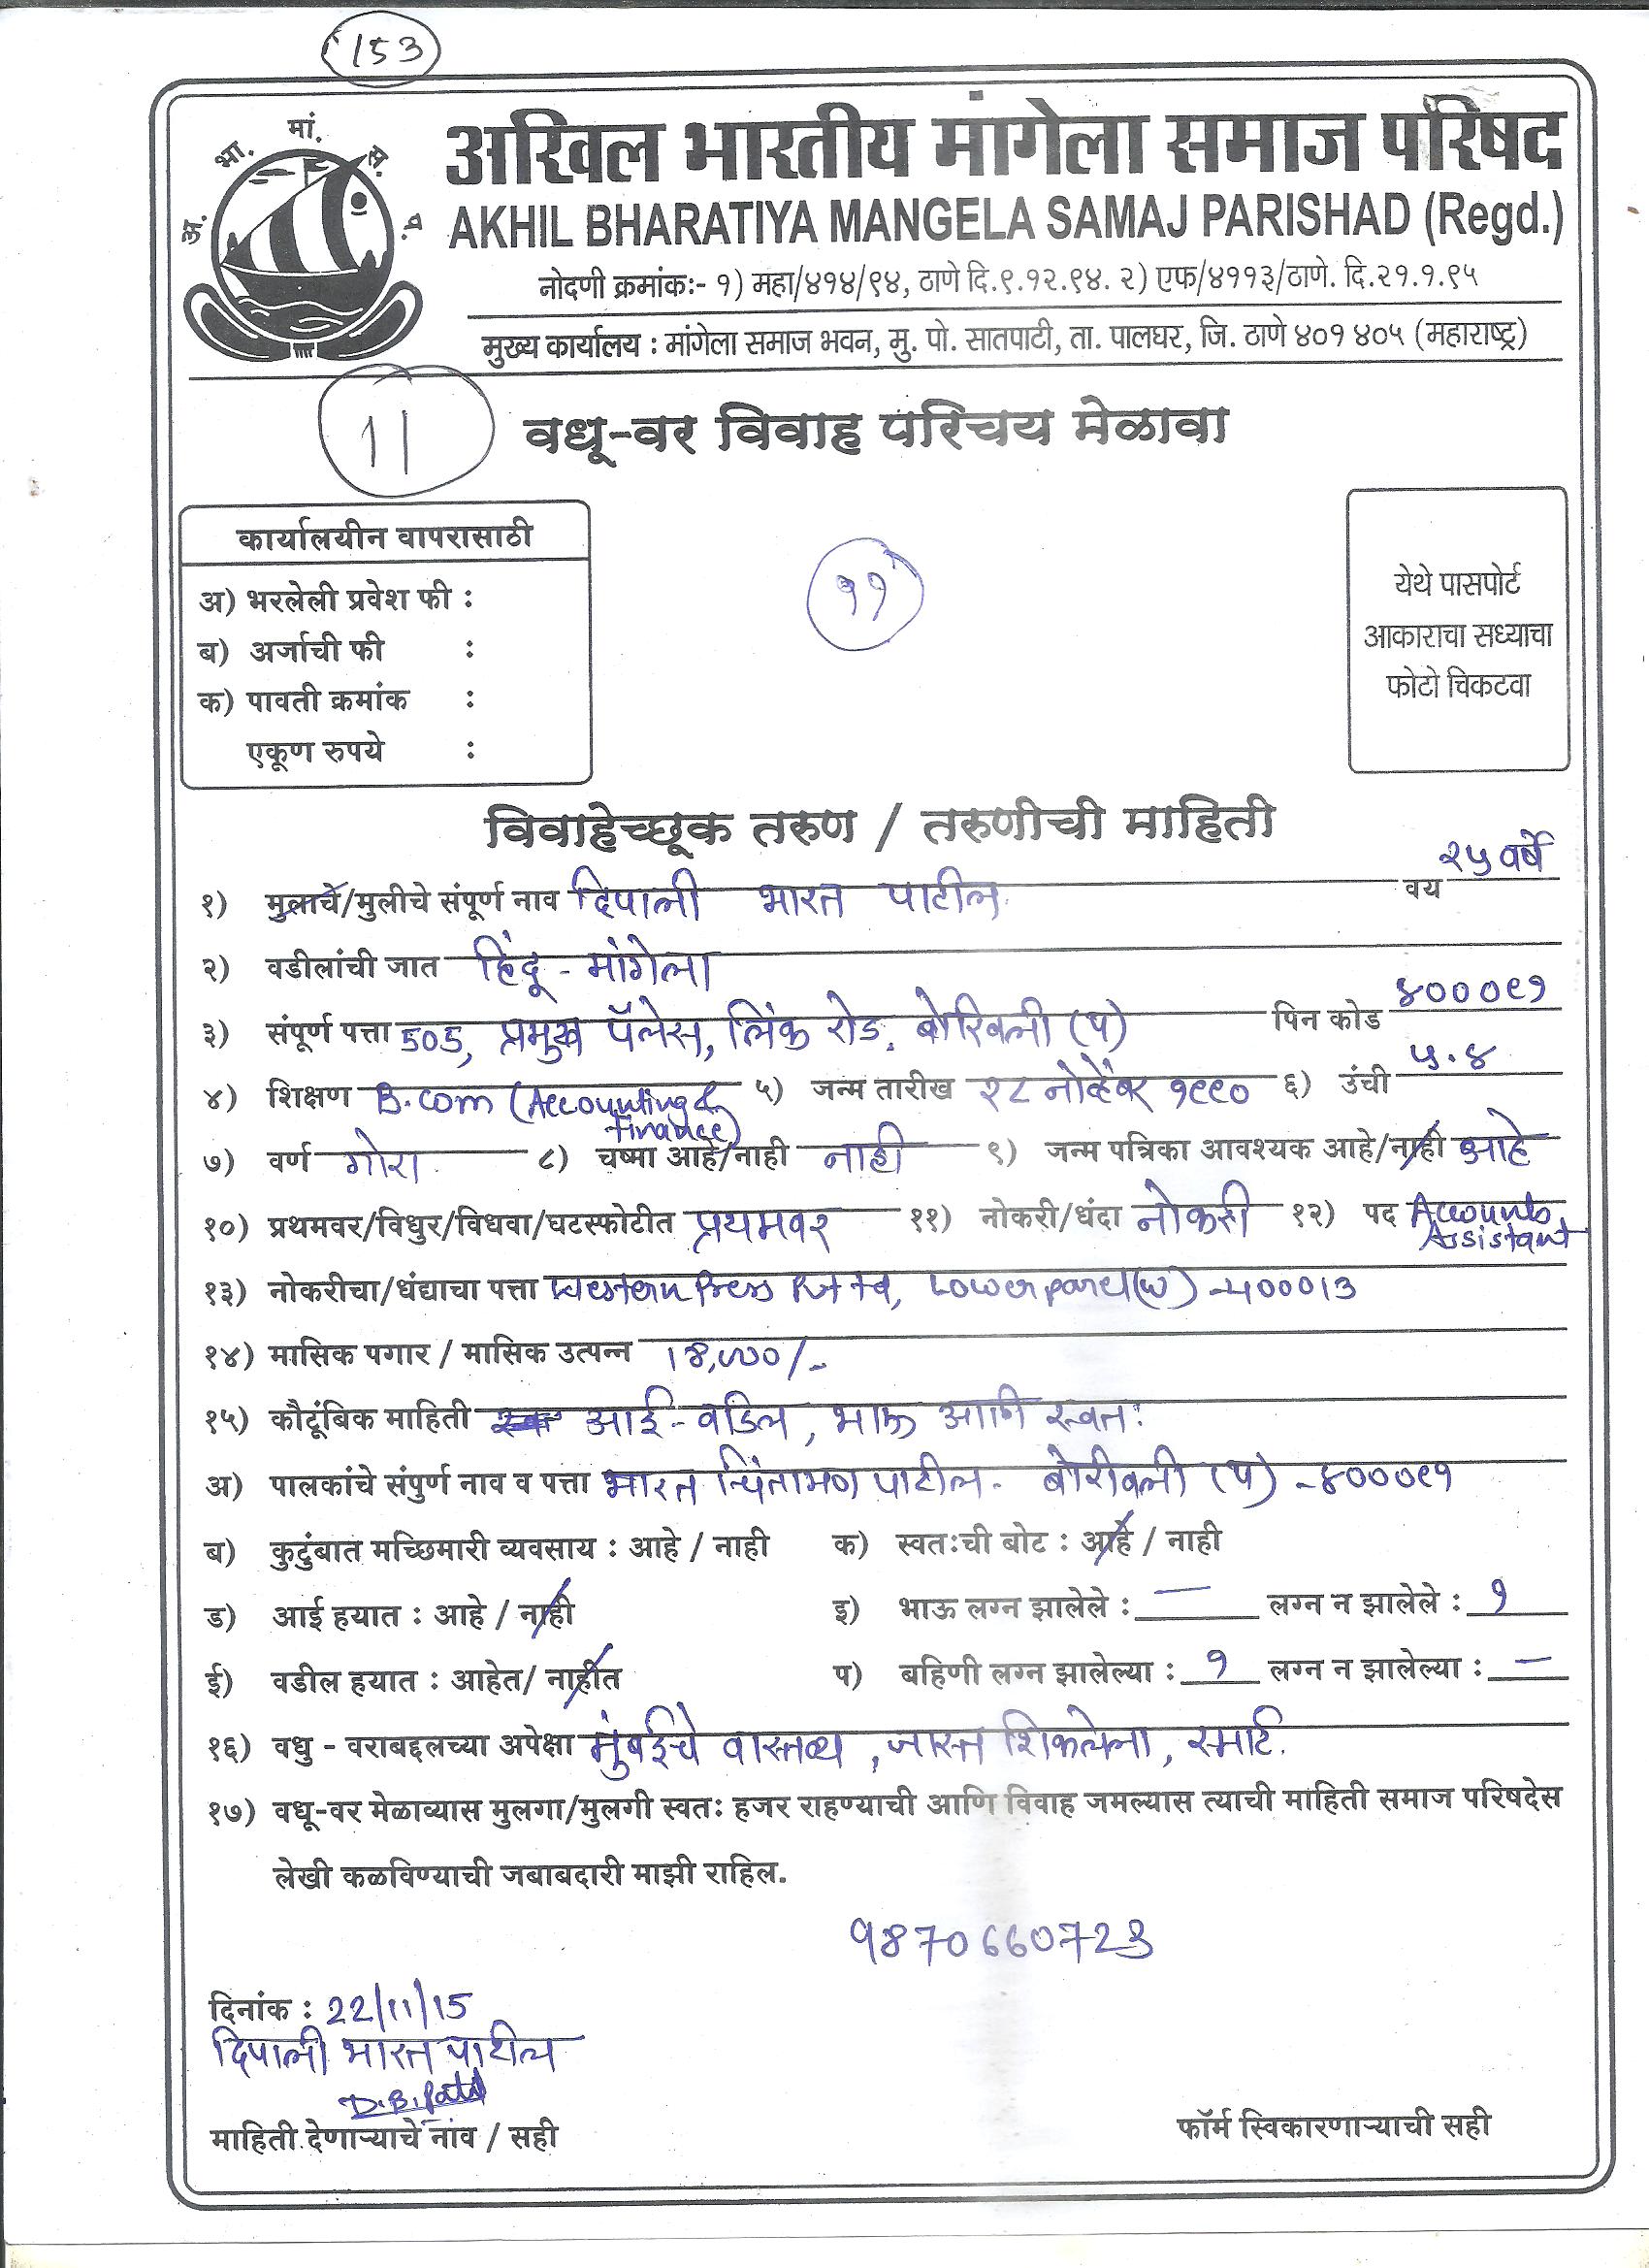 153
अ. भा. मां. स. प.
अखिल भारतीय मांगेला समाज परिषद
AKHIL BHARATIYA MANGELA SAMAJ PARISHAD (Regd.)
नोदणी क्रमांकः- १) महा/४१४/९४, ठाणे दि.९.१२.९४. २) एफ/४११३/ठाणे. दि.२१.१.९५
मुख्य कार्यालय : मांगेला समाज भवन, मु. पो. सातपाटी, ता. पालघर, जि. ठाणे ४०१ ४०५ (महाराष्ट्र)
11
वधू-वर विवाह परिचय मेळावा
कार्यालयीन वापरासाठी
अ) भरलेली प्रवेश फी :
ब) अर्जाची फी :
क) पावती क्रमांक :
एकूण रुपये :
११
येथे पासपोर्ट
आकाराचा सध्याचा
फोटो चिकटवा
विवाहेच्छूक तरुण / तरुणीची माहिती
१) मुलाचे/मुलीचे संपूर्ण नाव दिपाली भारत पाटील वय २५ वर्षे
२) वडीलांची जात हिंदू - मांगेला
३) संपूर्ण पत्ता 505, प्रमुख पॅलेस, लिंक रोड, बोरिवली (प) पिन कोड ४०००९१
४) शिक्षण B.com (Accounting & Finance) ५) जन्म तारीख २८ नोव्हेंबर १९९० ६) उंची ५.४
७) वर्ण गोरा ८) चष्मा आहे/नाही नाही ९) जन्म पत्रिका आवश्यक आहे/नाही आहे
१०) प्रथमवर/विधुर/विधवा/घटस्फोटीत प्रथमवर ११) नोकरी/धंदा नोकरी १२) पद Accounts Assistant
१३) नोकरीचा/धंद्याचा पत्ता Western Press Pvt Ltd, Lower parel (W) - 400013
१४) मासिक पगार / मासिक उत्पन्न 18,000/-
१५) कौटूंबिक माहिती आई - वडिल, भाऊ आणि स्वतः
अ) पालकांचे संपुर्ण नाव व पत्ता भारत चिंतामण पाटील - बोरीवली (प) - ४०००९१
ब) कुटुंबात मच्छिमारी व्यवसाय : आहे / नाही क) स्वतःची बोट : आहे / नाही
ड) आई हयात : आहे / नाही इ) भाऊ लग्न झालेले : — लग्न न झालेले : १
ई) वडील हयात : आहेत/ नाहीत प) बहिणी लग्न झालेल्या : १ लग्न न झालेल्या : —
१६) वधु - वराबद्दलच्या अपेक्षा मुंबईचे वास्तव्य, जास्त शिकलेला, स्मार्ट.
१७) वधू-वर मेळाव्यास मुलगा/मुलगी स्वतः हजर राहण्याची आणि विवाह जमल्यास त्याची माहिती समाज परिषदेस
लेखी कळविण्याची जबाबदारी माझी राहिल.
9870660723
दिनांक : 22/11/15
दिपाली भारत पाटील
D.B.Patil
माहिती देणाऱ्याचे नांव / सही फॉर्म स्विकारणाऱ्याची सही